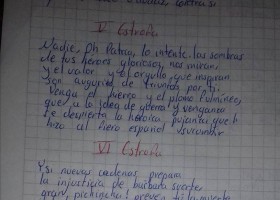 V Estrofa
Nadie, Oh Patria, lo intente. las sombras
de tus héroes gloriosos nos miran,
y el valor y el orgullo que inspiran
son augurios de triunfos por ti.
Venga el hierro y el plomo fulmíneo,
que a la idea de guerra y venganza
se despierta la heroica pujanza que
hizo al fiero español sucumbir
VI Estrofa
Y si nuevas cadenas prepara
la injusticia de bárbara suerte,
gran Pichincha! prevén tú la muerte